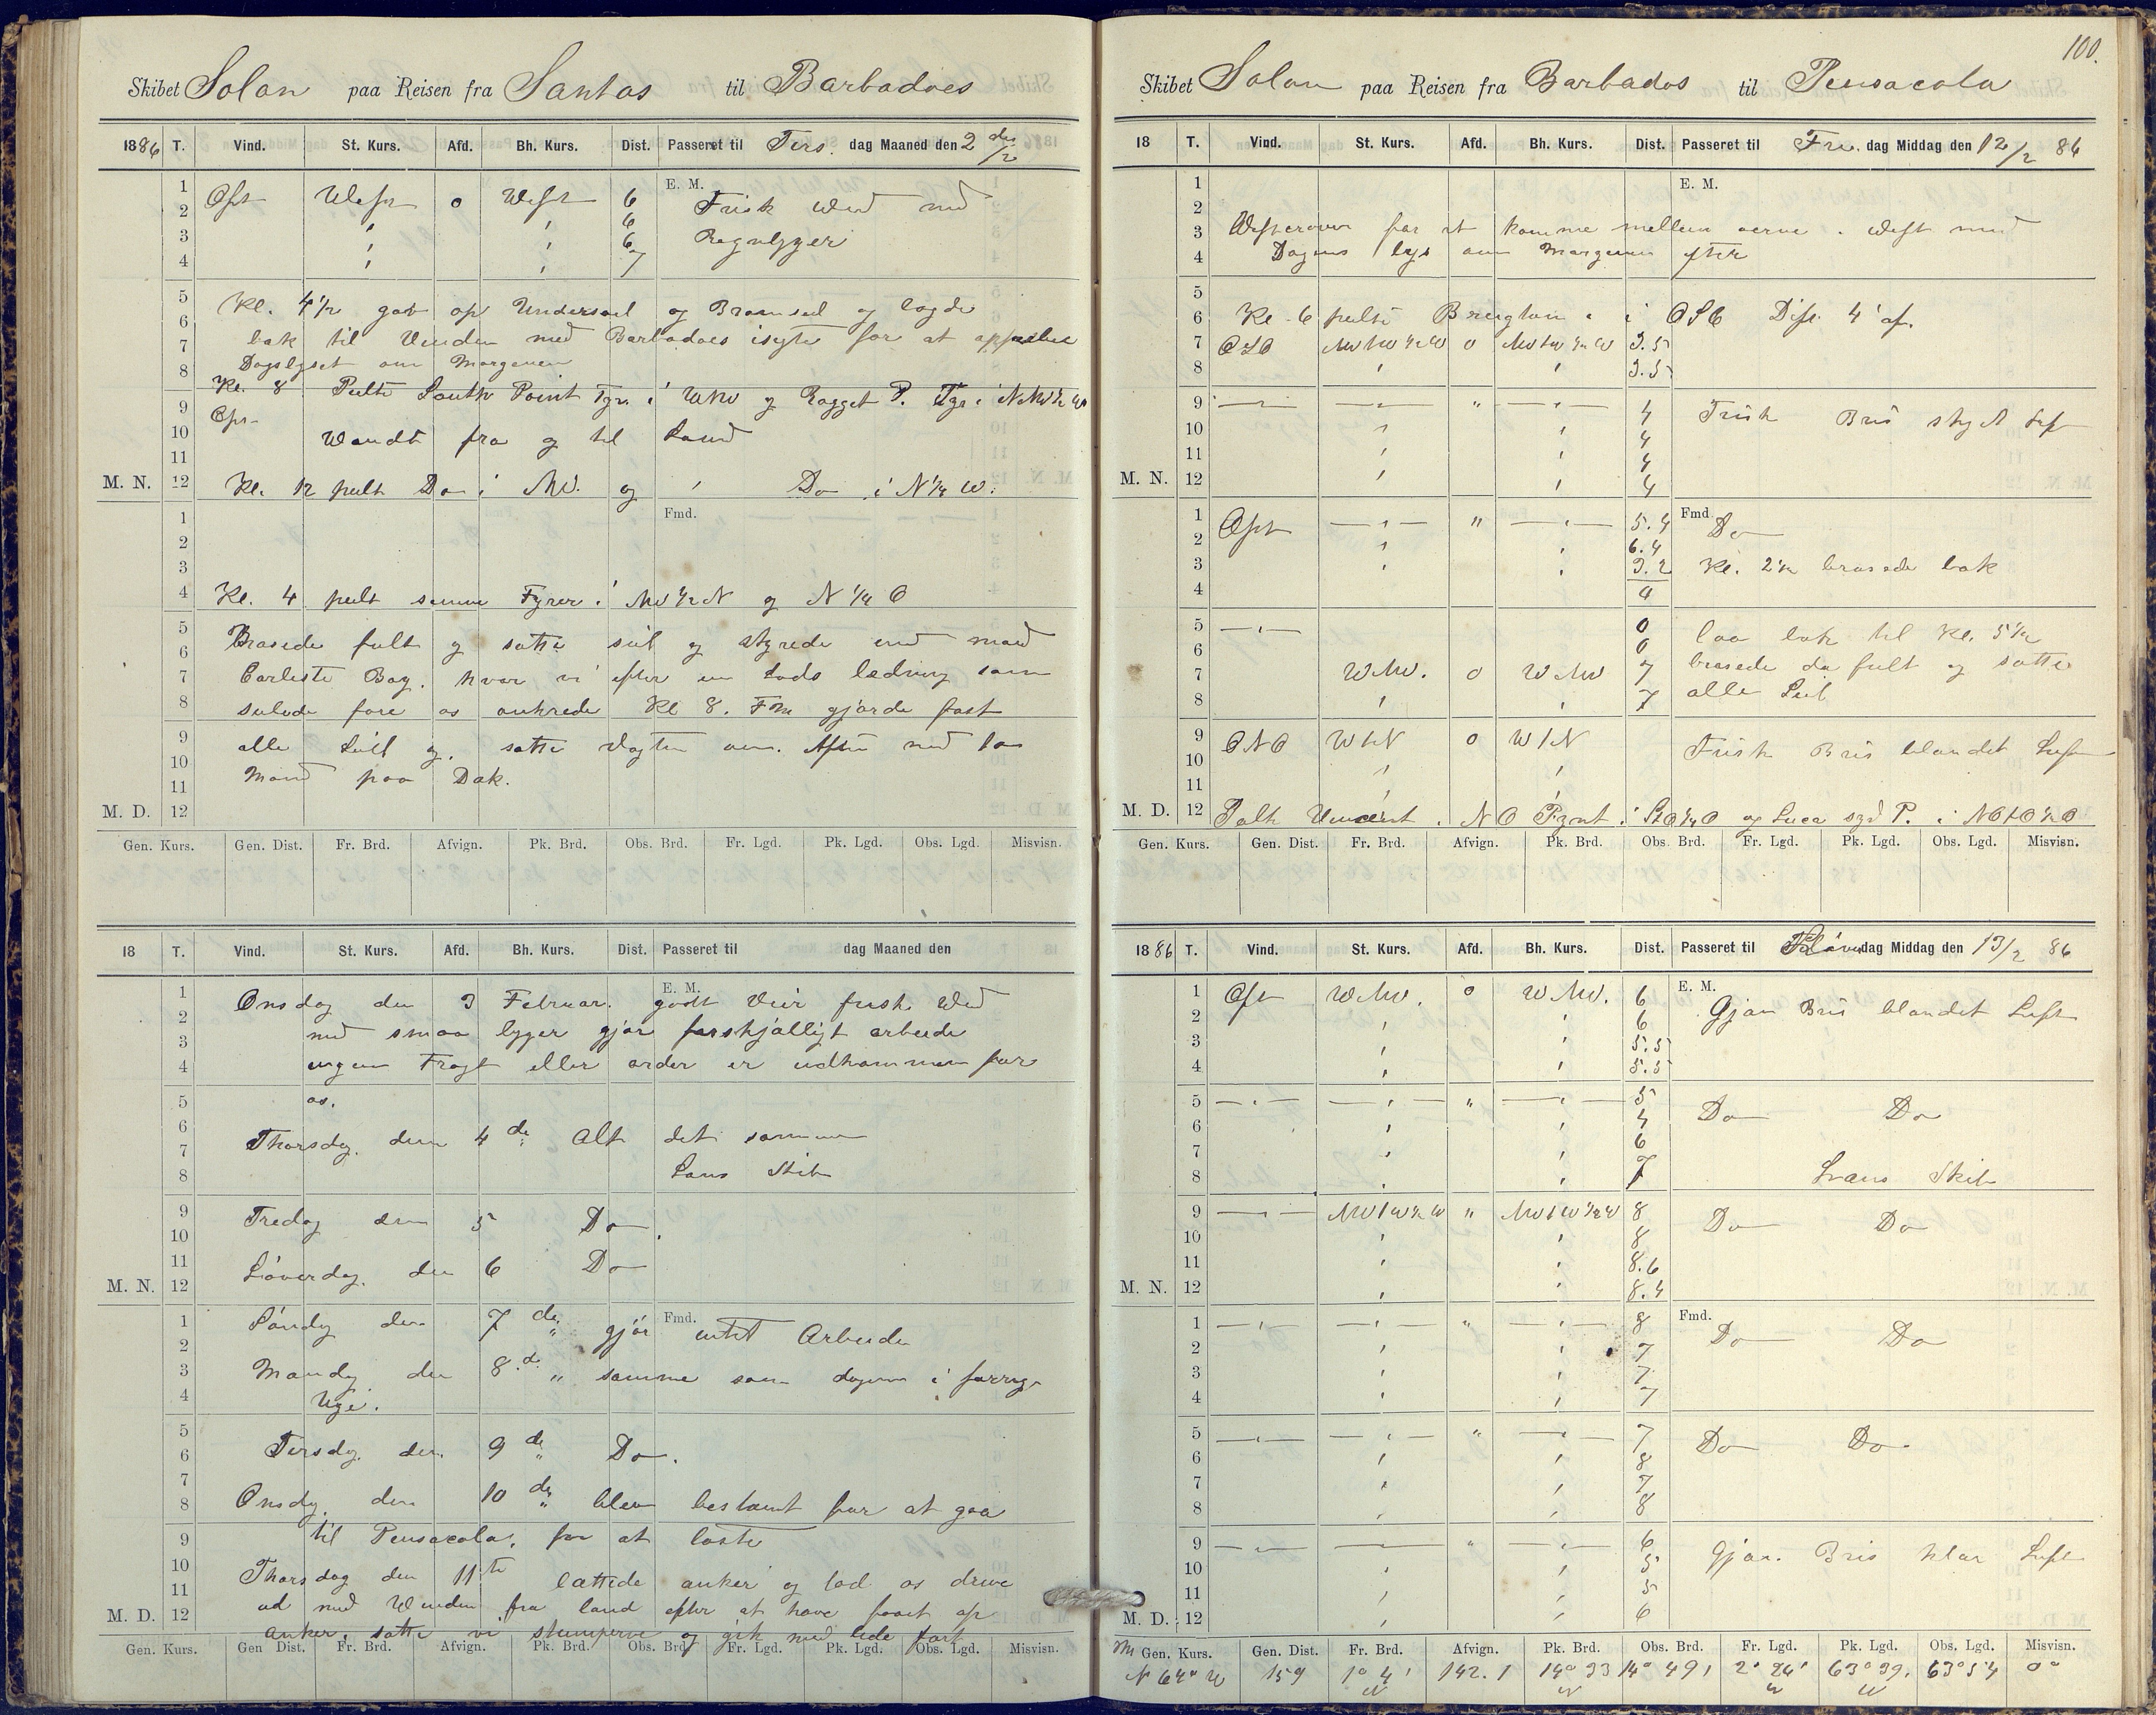 Skibet Solon paa Reisen fra Santos til Barbadoes
1886 T. Vind. St. Kurs. Afd. Bh. Kurs. Dist. Passeret til Tirs. dag Maaned den 2 den /2
1 Ost West 0 West 6 E. M. Frisk Wind med
2 " " 6
3 " " 6 Regnbyger
4 " " 7
5 Kl. 4 1/2 gav op Underseil og Bramseil og lagde
6 bak til Vinden med Barbadoes isigte for at oppasse
7 Dagslyset om Morgenen
8 Kl. 8 Peilte South Point Fyr. i WNW og Ragget P. Fyr i NNW 1/2 W
9 Ost
10 Wendte fra og til Land
11
M. N. 12 Kl. 12 peilt Do i NW. og " Do i N 1/4 W.
1 Fmd.
2
3
4 Kl. 4 peilt samme Fyrer i NW 1/2 N og N 1/4 O
5 Brasede fult og satte seil og styrede ind mod
6
7 Carleile Bay. hvor vi efter en Lods ledning som
8 seilede fore os ankrede Kl 8. Fm gjorde fast
9 alle Seil og satte Vagten om Aften med en
10 Mand paa Dæk.
11
M. D. 12
Gen. Kurs. Gen. Dist. Fr. Brd. Afvign. Pk. Brd. Obs. Brd. Fr. Lgd. Pk. Lgd. Obs. Lgd. Misvisn.
18 T. Vind. St. Kurs. Afd. Bh. Kurs. Dist. Passeret til dag Maaned den
1 E. M. Onsdag den 3 Februar. godt Veir frisk Wind
2 med smaa byger gjør forskjælligt arbeide
3
4 ingen Fragt eller order er udkommen for
5 os.
6 Thorsdag. den 4 de Alt det samme
7
8 Læns Skib
9 Fredag den 5 Do.
10
11 Løverdag. den 6 Do
M. N. 12
1 Fmd. Søndag den 7 de " gjør intet Arbeide
2
3 Mandag den 8. d. " samme som dagene i forrige
4 Uge.
5
6 Tirsdag. den 9 de " Do.
7
8 Onsdag. den 10 de " blev bestæmt for at gaa
9 til Pensacola, for at laste
10 Thorsdag den 11te lættede anker og lod os drive
11 ud med Winden fra land efter at have faaet op
M. D. 12 anker, satte vi stumperne og gik med lide fart
Gen. Kurs. Gen Dist. Fr. Brd. Afvign. Pk. Brd. Obs. Brd. Fr. Lgd. Pk. Lgd. Obs. Lgd. Misvisn.
100.
Skibet Solon paa Reisen fra Barbados til Pensacola
18 T. Vind. St. Kurs. Afd. Bh. Kurs. Dist. Passeret til Fre. dag Middag den 12/2 86
1 E. M.
2
3 Westerover for at komme mellem øerne i West med
4 Dagens lys om Morgenen efter
5
6 Kl 6 peilte i OSO Dist. 4' af.
7 OSO NWtW 1/2 W 0 NWtW 1/2 W 3.5
8 " " 3.5
9 — " — — " — " — " — 4 Frisk Bris skyet Luft
10 " " 4
11 " " 4
M. N. 12 " " 4
1 Ost — " — " — " — 5.4 Fmd. Do
2 " " 6.4
3 " " 3.2 Kl. 2 1/2 brasede bak
4 0
5 — " — 0 laa bak til Kl. 5 1/2
6 0 brasede da fult og satte
7 WNW. 0 WNW 7
8 " " 7 alle Seil
9 ONO WtN 0 WtN Frisk Bris blandet Luft
10 " "
11 " "
M. D. 12 Peilt Vincent i NO Pynt i StO 1/4 O og Lucea syd P. i NOtO 1/2 O
Gen. Kurs. Gen. Dist. Fr. Brd. Afvign. Pk. Brd. Obs. Brd. Fr. Lgd. Pk. Lgd. Obs. Lgd. Misvisn.
1886 T. Vind. St. Kurs. Afd. Bh. Kurs. Dist. Passeret til Løverdag Middag den 13/2 86
1 Ost WNW. 0 WNW. 6 E. M. Gjøn Bris blandet Luft
2 " " 6
3 " " 5.5
4 " " 5.5
5 — " — — " — " — " — 5 Do Do
6 " " 4
7 " " 6
8 " " 7 Læns Skib
9 — " — NWtW 1/2 W " NWtW 1/2 W 8 Do Do
10 " " 8
11 " " 8.6
M. N. 12 " " 8.4
1 — " — — " — " — " — 8 Fmd. Do Do
2 " " 7
3 " " 7
4 " " 7
5 — " — — " — " — " — 7 Do Do
6 " " 8
7 " " 7
8 " " 8
9 — " — — " — " — " — 6 Gjøn. Bris klar Luft
10 " " 5
11 " " 5
M. D. 12 " " 6
Gen. Kurs. Gen. Dist. Fr. Brd. Afvign. Pk. Brd. Obs. Brd. Fr. Lgd. Pk. Lgd. Obs. Lgd. Misvisn.
N 64° W 159 1° 4' N 142.1 14° 33 N 14° 49' 2° 24' W 63° 39. W 63° 54 0°